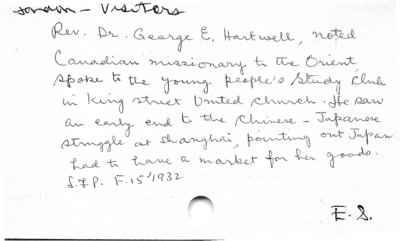 - Visitors
Rev. Dr. George E. Hartwell, noted
Canadian missionary to the Orient,
spoke to the young people's Study Club
in King Street United Church. He saw
an early end to the Chinese - Japanese
struggle at Shanghai, pointing out Japan
had to have a market for her goods.
S.F.P. F. 15 '1932
E. S.